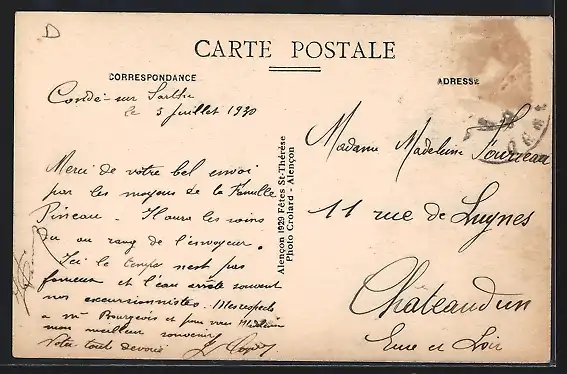 D
CARTE POSTALE
CORRESPONDANCE
ADRESSE
Condé-sur Sarthe
le 5 juillet 1930
Merci de votre bel envoi
par les moyens de la Famille
Pineau.
du au rang de l'envoyeur.
Ici le temps n'est pas
fameux et l'eau arrête souvent
nos excursionnistes. Mes respects
a Mr Bourgeois et pour vous Madelein
mon meilleur souvenir
Votre tout dévoué
Alençon 1929 Fêtes St-Thérèse
Photo Crolard - Alençon
Madame Madeleine Fourreau
11 rue de Luynes
Châteaudun
Eure et Loir